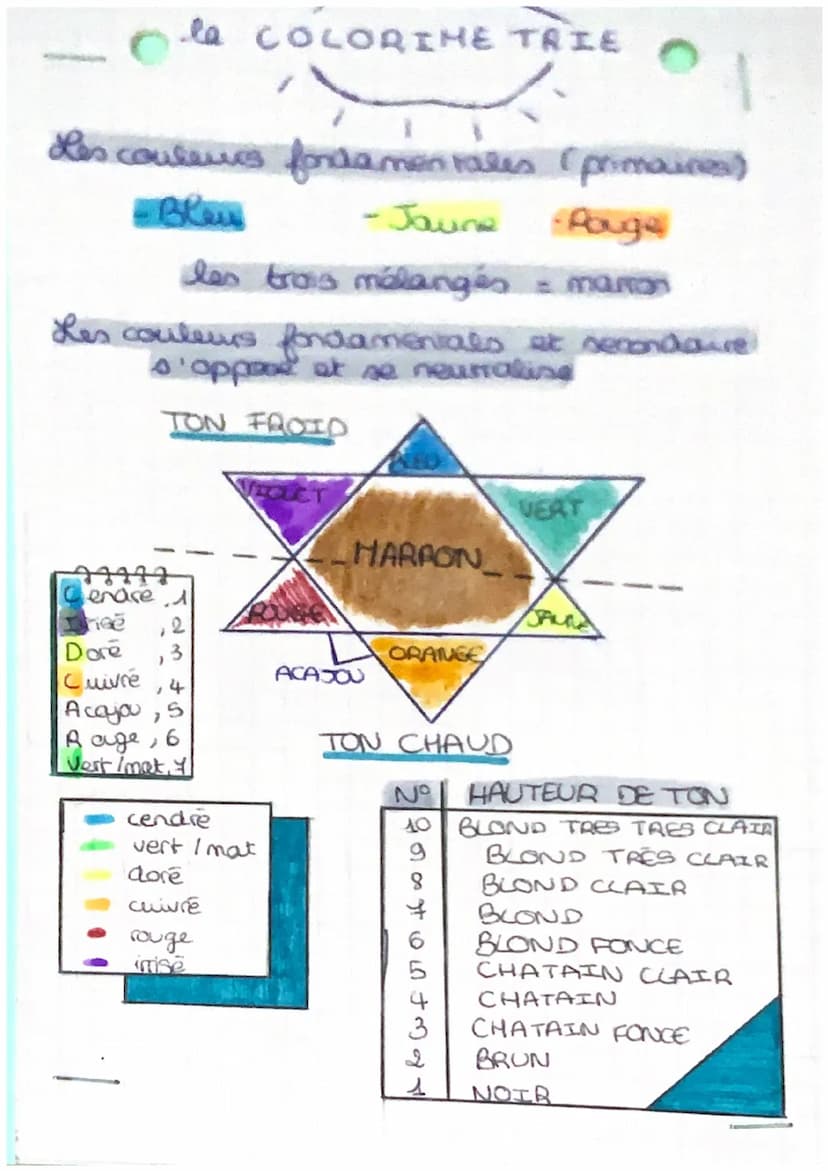 la COLORIMETRIE
Les couleurs fondamentales (primaires)
- Bleu - Jaune - Rouge
les trois mélangés = marron
Les couleurs fondamentales et secondaire
s'oppose et se neutralise
TON FROID
BLEU
VIOLET
VERT
MARRON
ROUGE
JAUNE
ORANGE
ACAJOU
TON CHAUD
Cendre , 1
Irisé , 2
Doré , 3
Cuivré , 4
Acajou , 5
Rouge , 6
Vert / mat, 7
cendré
vert / mat
doré
cuivré
rouge
irisé
N° HAUTEUR DE TON
10 BLOND TRES TRES CLAIR
9 BLOND TRÉS CLAIR
8 BLOND CLAIR
7 BLOND
6 BLOND FONCE
5 CHATAIN CLAIR
4 CHATAIN
3 CHATAIN FONCE
2 BRUN
1 NOIR